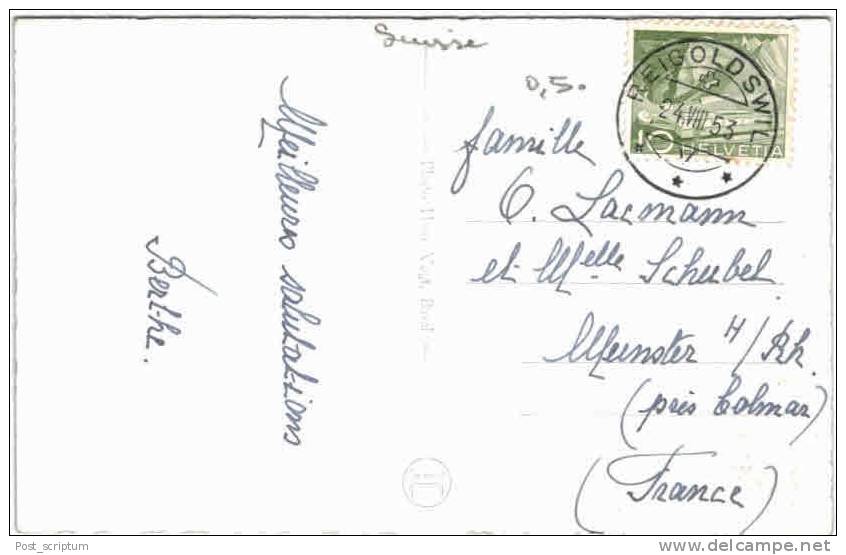 Suisse
0,50
Meilleures salutations
Berthe.
REIGOLDSWIL
24.VIII.53
10 HELVETIA
famille
et Melle Schubel
Munster H/Rh.
(près Colmar)
(France)
Post_scriptum
www.delcampe.net